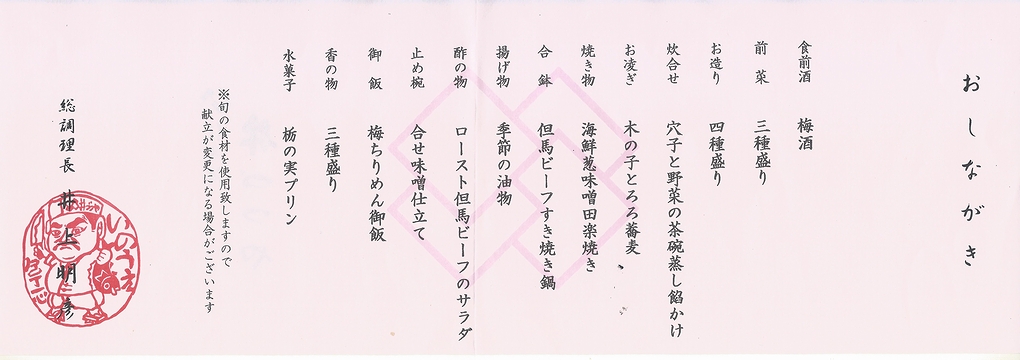 おしながき
食前酒　梅酒
前菜　三種盛り
お造り　四種盛り
炊合せ　穴子と野菜の茶碗蒸し餡かけ
お凌ぎ　木の子とろろ蕎麦
焼き物　海鮮葱味噌田楽焼き
合鉢　但馬ビーフすき焼き鍋
揚げ物　季節の油物
酢の物　ロースト但馬ビーフのサラダ
止め椀　合せ味噌仕立て
御飯　梅ちりめん御飯
香の物　三種盛り
水菓子　栃の実プリン
※旬の食材を使用致しますので
献立が変更になる場合がございます
総調理長　井上明彦
いのうえ